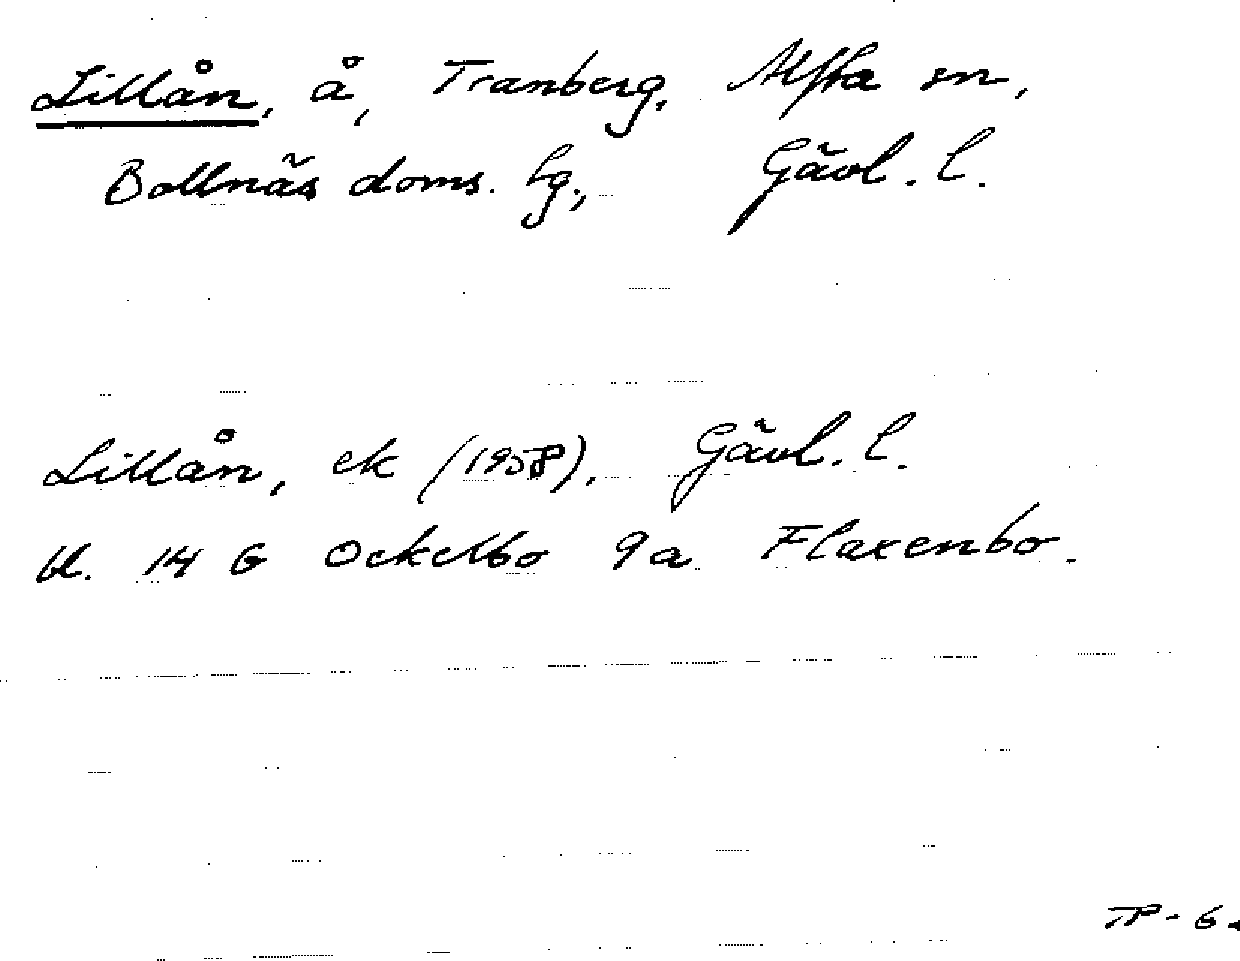 Lillån, å, Tranberg, Alfta sn,
Bollnäs doms. lg., Gävl. l.
Lillån, ek (1958), Gävl. l.
bl. 14 G Ockelbo 9a Flaxenbo.
TP-6